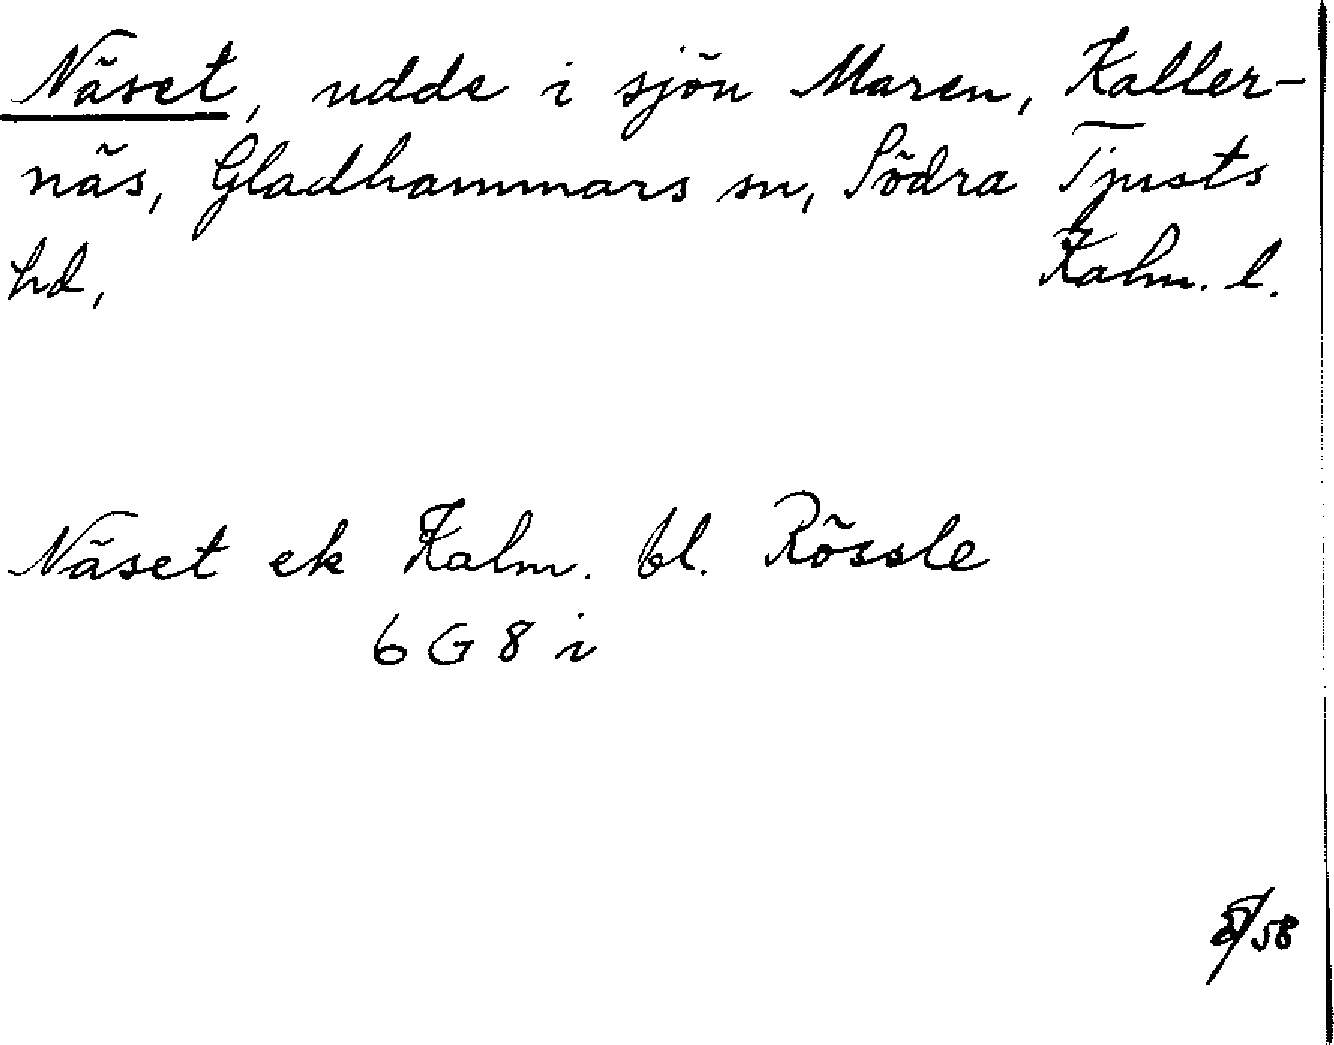 Näset, udde i sjön Maren, Kaller-
näs, Gladhammars sn, Södra Tjusts
hd, Kalm. l.
Näset ek Kalm. bl. Rössle
6 G 8 i
/58